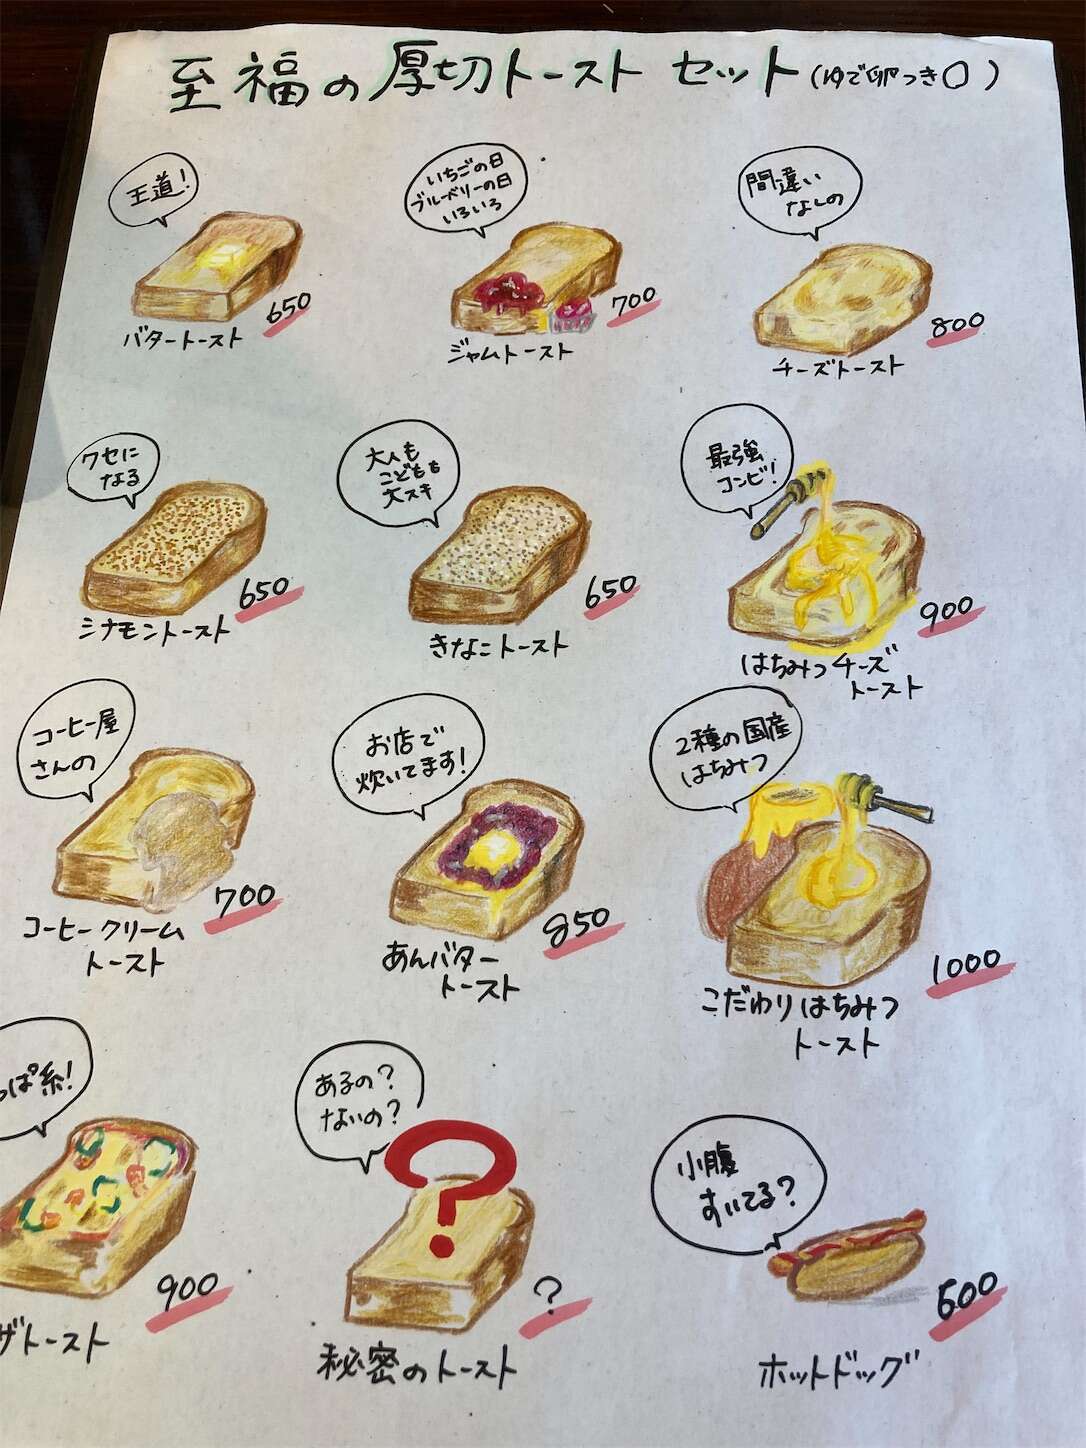 至福の厚切トースト セット(ゆで卵つき○)
王道!
650
バタートースト
いちごの日
ブルーベリーの日
いろいろ
700
ジャムトースト
間違い
なしの
800
チーズトースト
クセに
なる
650
シナモントースト
大人も
こどもも
大スキ
650
きなこトースト
最強
コンビ!
900
はちみつチーズ
トースト
コーヒー屋
さんの
700
コーヒークリーム
トースト
お店で
炊いてます!
850
あんバター
トースト
2種の国産
はちみつ
1000
こだわりはちみつ
トースト
っぱ系!
900
ザトースト
あるの?
ないの?
?
?
秘密のトースト
小腹
すいてる?
600
ホットドッグ